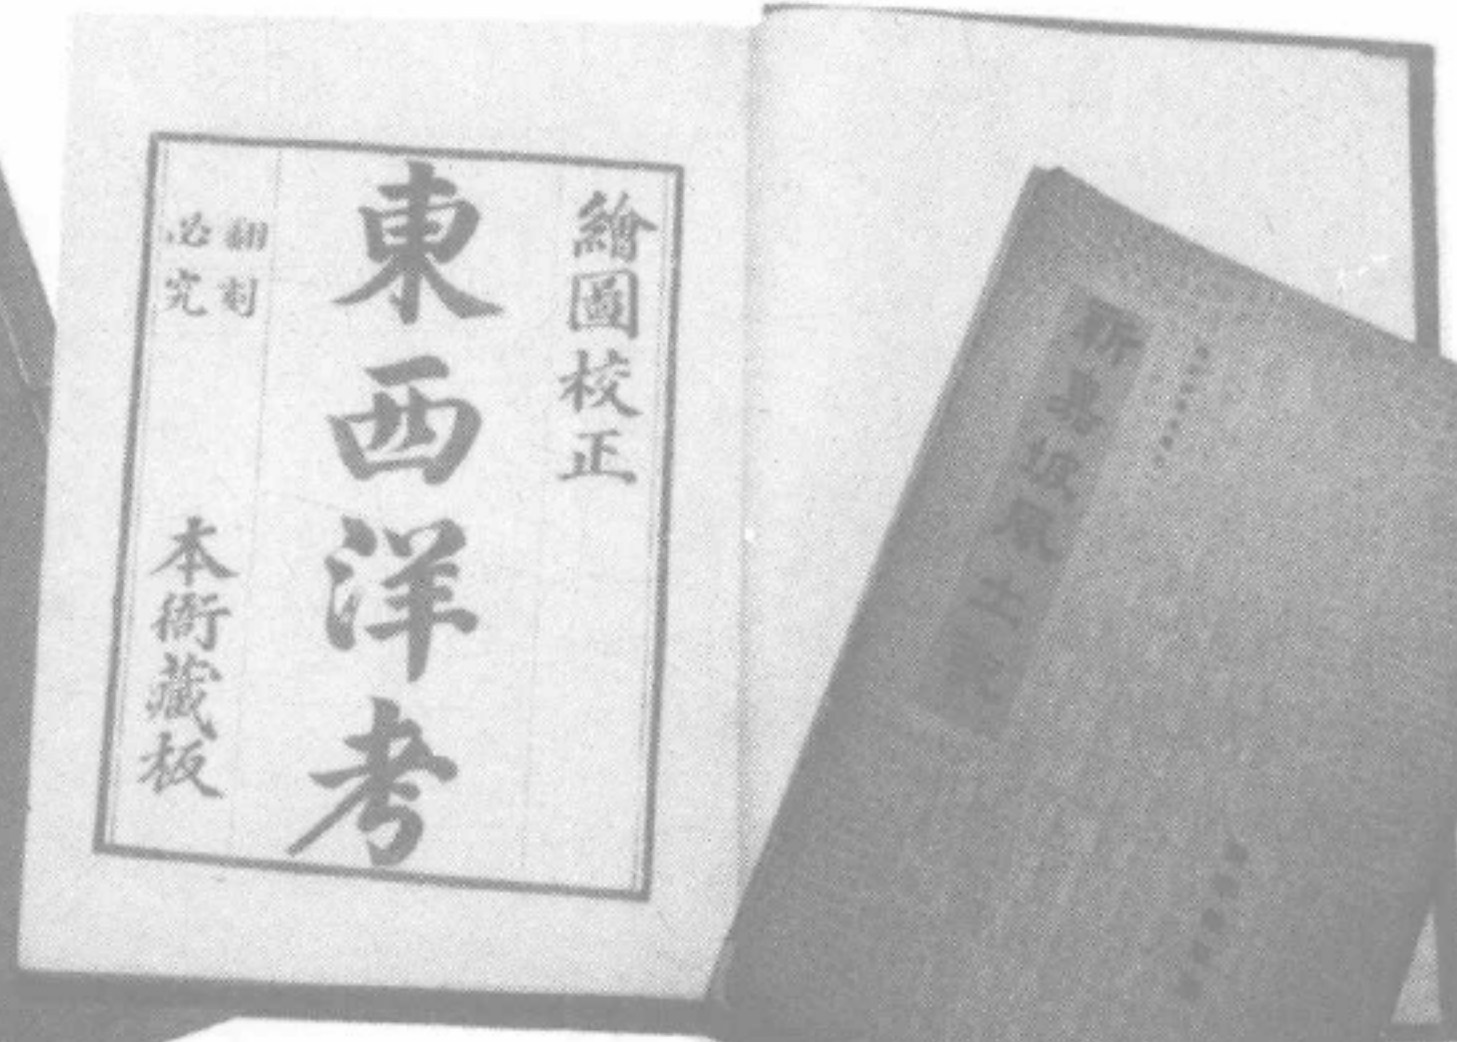 繪圖校正
東西洋考
翻刻
必究
本衙藏板
新嘉坡風土記